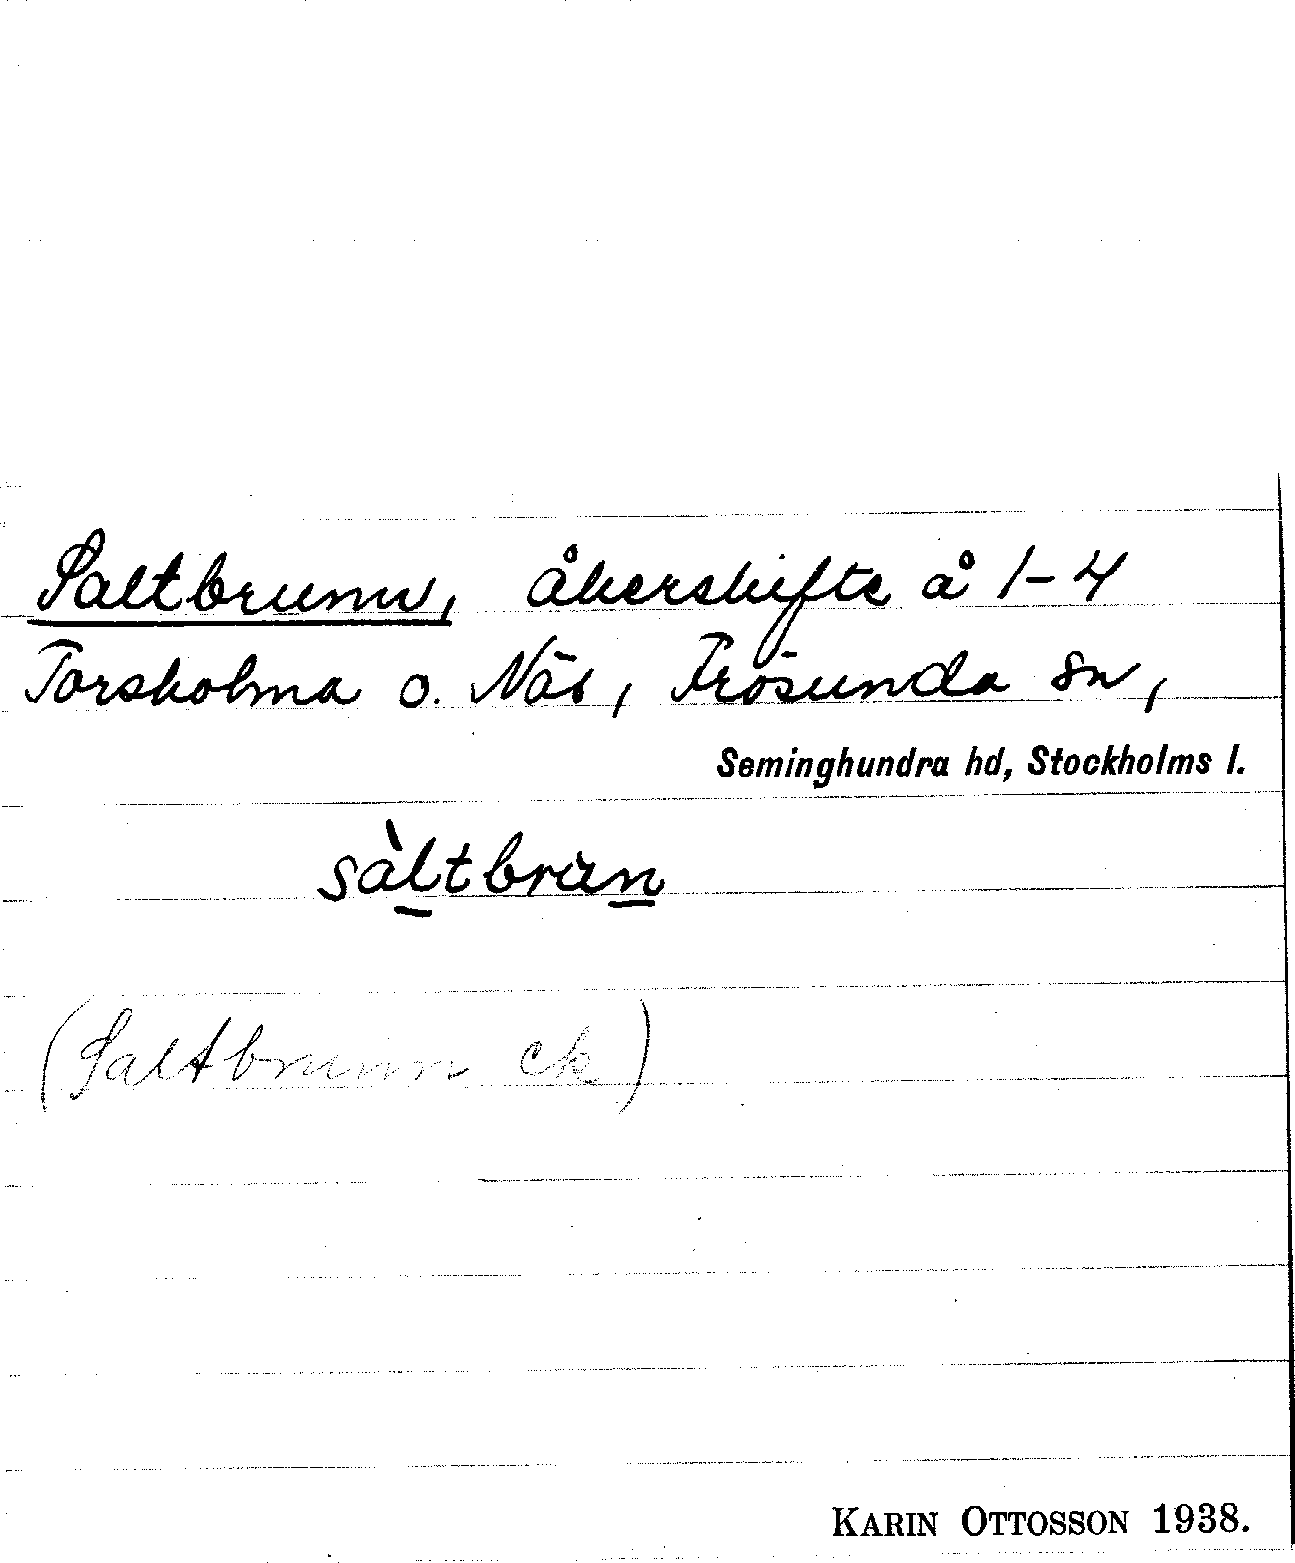 Saltbrunn, åkerskifte å 1-4
Torsholma o. Näs, Frösunda sn,
Seminghundra hd, Stockholms l.
sàltbràn
(Saltbrunn ek)
KARIN OTTOSSON 1938.